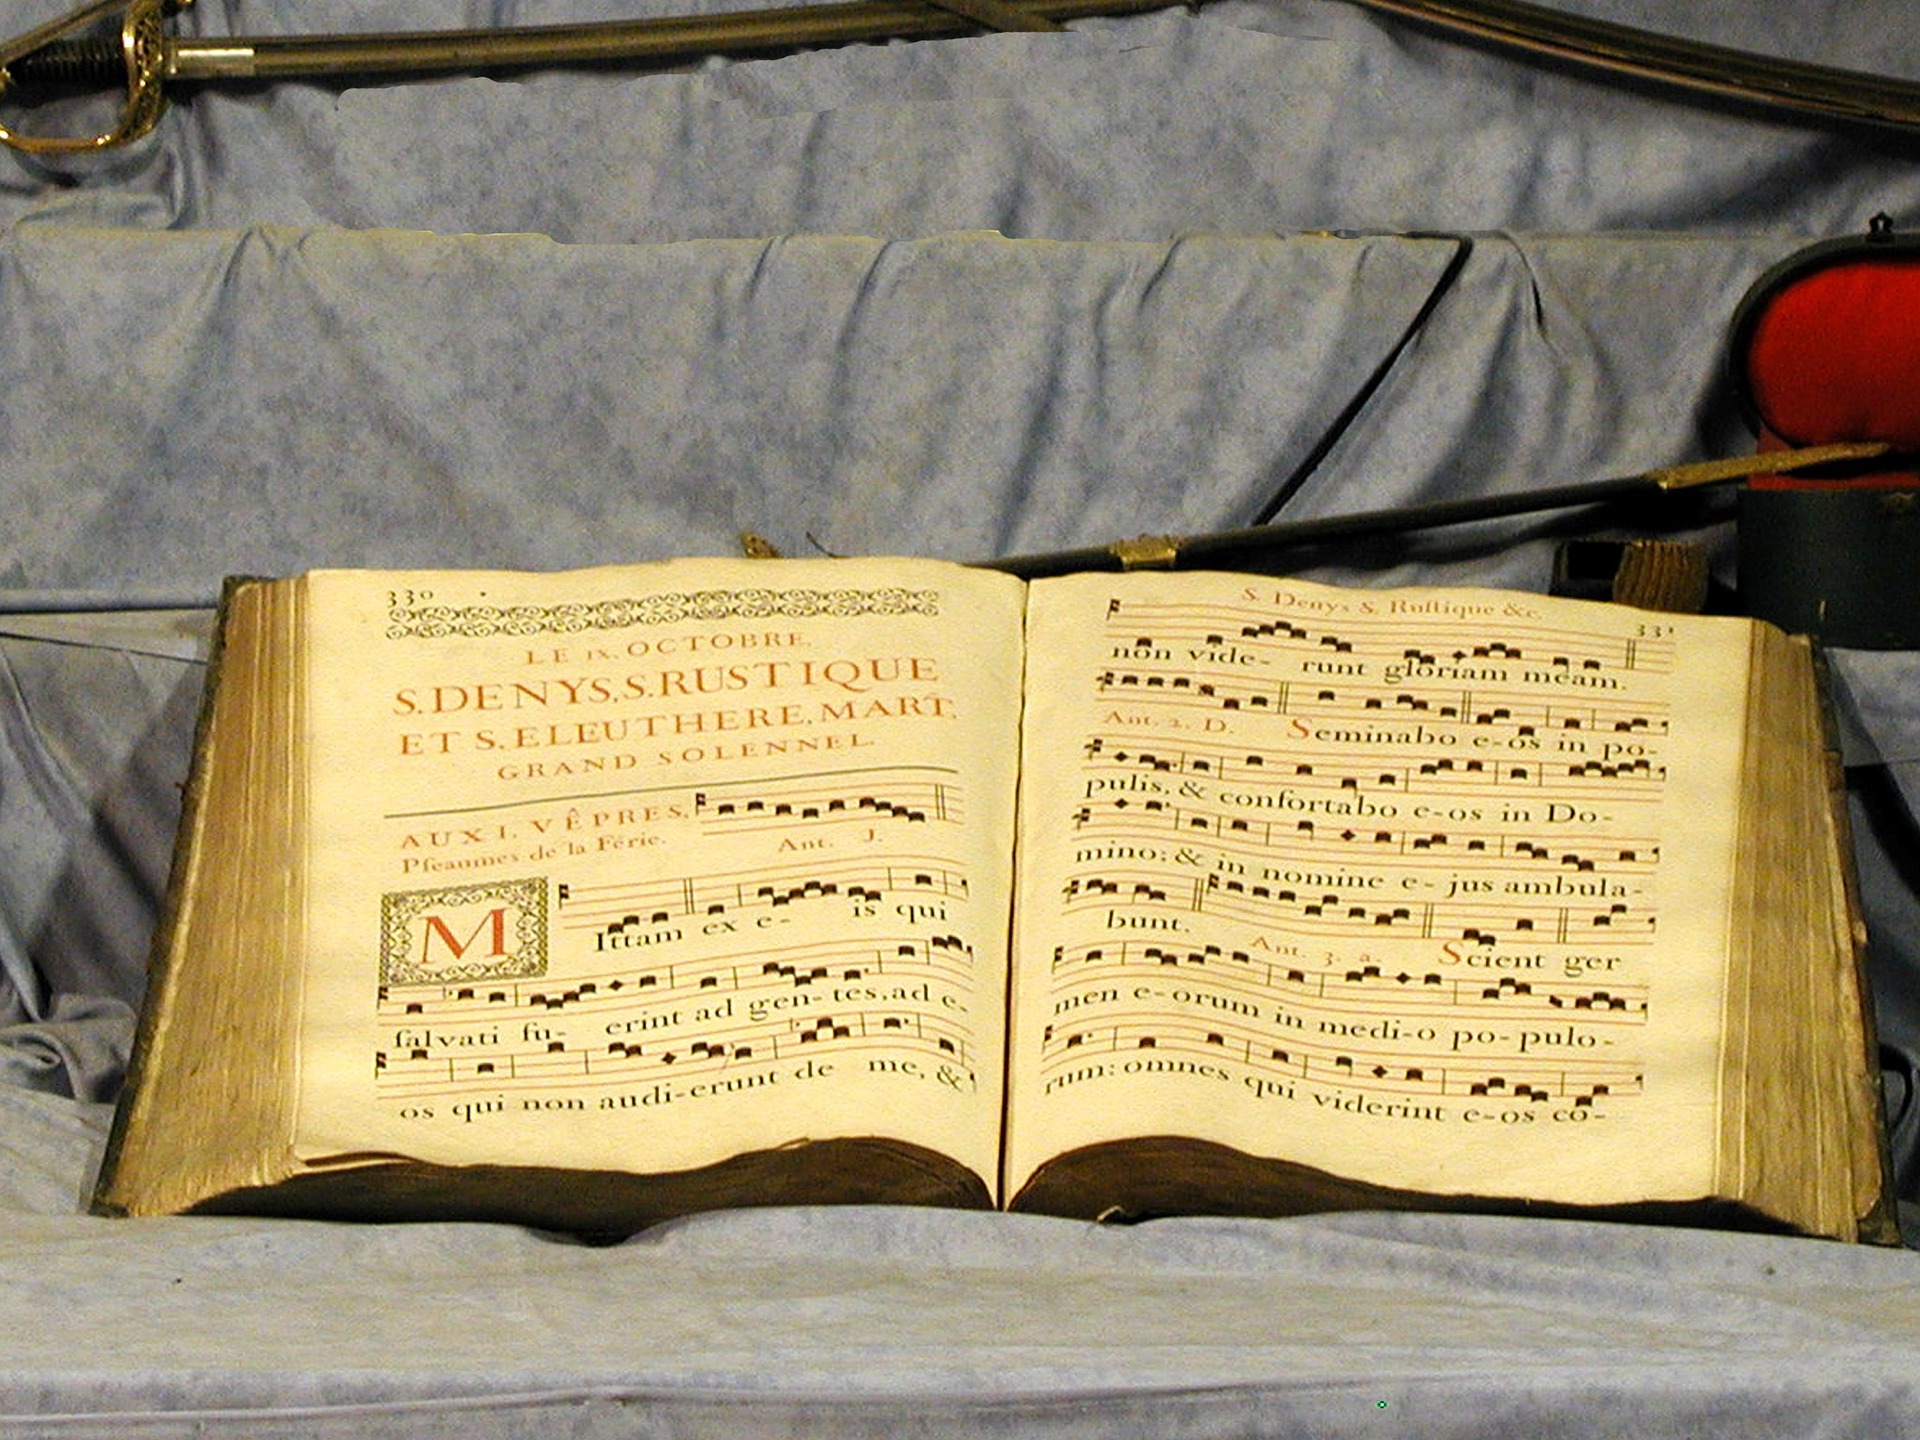 330
LE IX. OCTOBRE.
S. DENYS, S. RUSTIQUE
ET S. ELEUTHERE, MART.
GRAND SOLENNEL.
AUX I. VÊPRES,
Pſeaumes de la Férie.
Ant. J.
MIttam ex e- is qui
ſalvati fu- erint ad gen-tes, ad e-
os qui non audi-erunt de me, &
S. Denys S. Ruſtique &c.
331
non vide- runt gloriam meam.
Ant. 2. D. Seminabo e-os in po-
pulis, & confortabo e-os in Do-
mino: & in nomine e-jus ambula-
bunt. Ant. 3. a. Scient ger
men e-orum in medi-o po-pulo-
rum: omnes qui viderint e-os co-